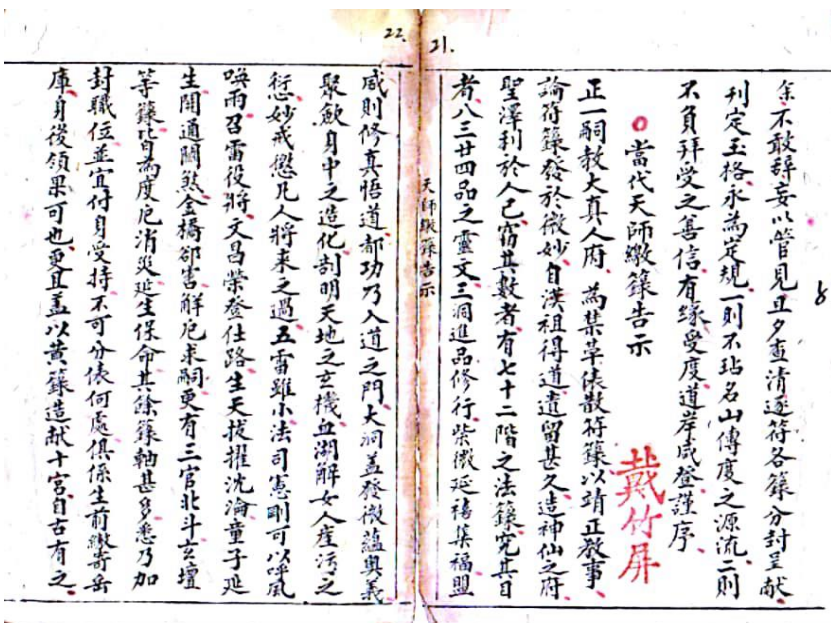 21.
余不敢辞妄以管見旦夕查清逐符各籙分封呈献
刊定玉格永為定規一則不玷名山傳度之源流二則
不負拜受之善信有縁受度道岸咸登謹序
當代天師繳籙告示
戴竹屏
正一嗣教大真人府為禁革俵散符籙以靖正教事
論符籙發於微妙自漢祖得道遺留甚久造神仙之府
聖澤利於人已窃其數者有七十二階之法籙究其目
者八三廿四品之靈文三洞進品修行紫微延禧集福盟
天師繳籙告示
22.
威則修真悟道都功乃入道之門大洞盖發微蘊奥義
聚歛身中之造化剖明天地之玄機血湖解女人産污之
愆妙戒懲凡人將来之過五雷雖小法司憲剛可以呼風
喚雨召雷役將文昌榮登仕路生天拔擢沈淪童子延
生開通關煞金橋郤害解厄求嗣更有三官北斗玄壇
等籙皆為度厄消災延生保命其餘籙軸甚多悉乃加
封職位並宜付身受持不可分俵何處俱係生前繳寄岳
庫身後領果可也更且盖以黄籙造献十宮自古有之
8